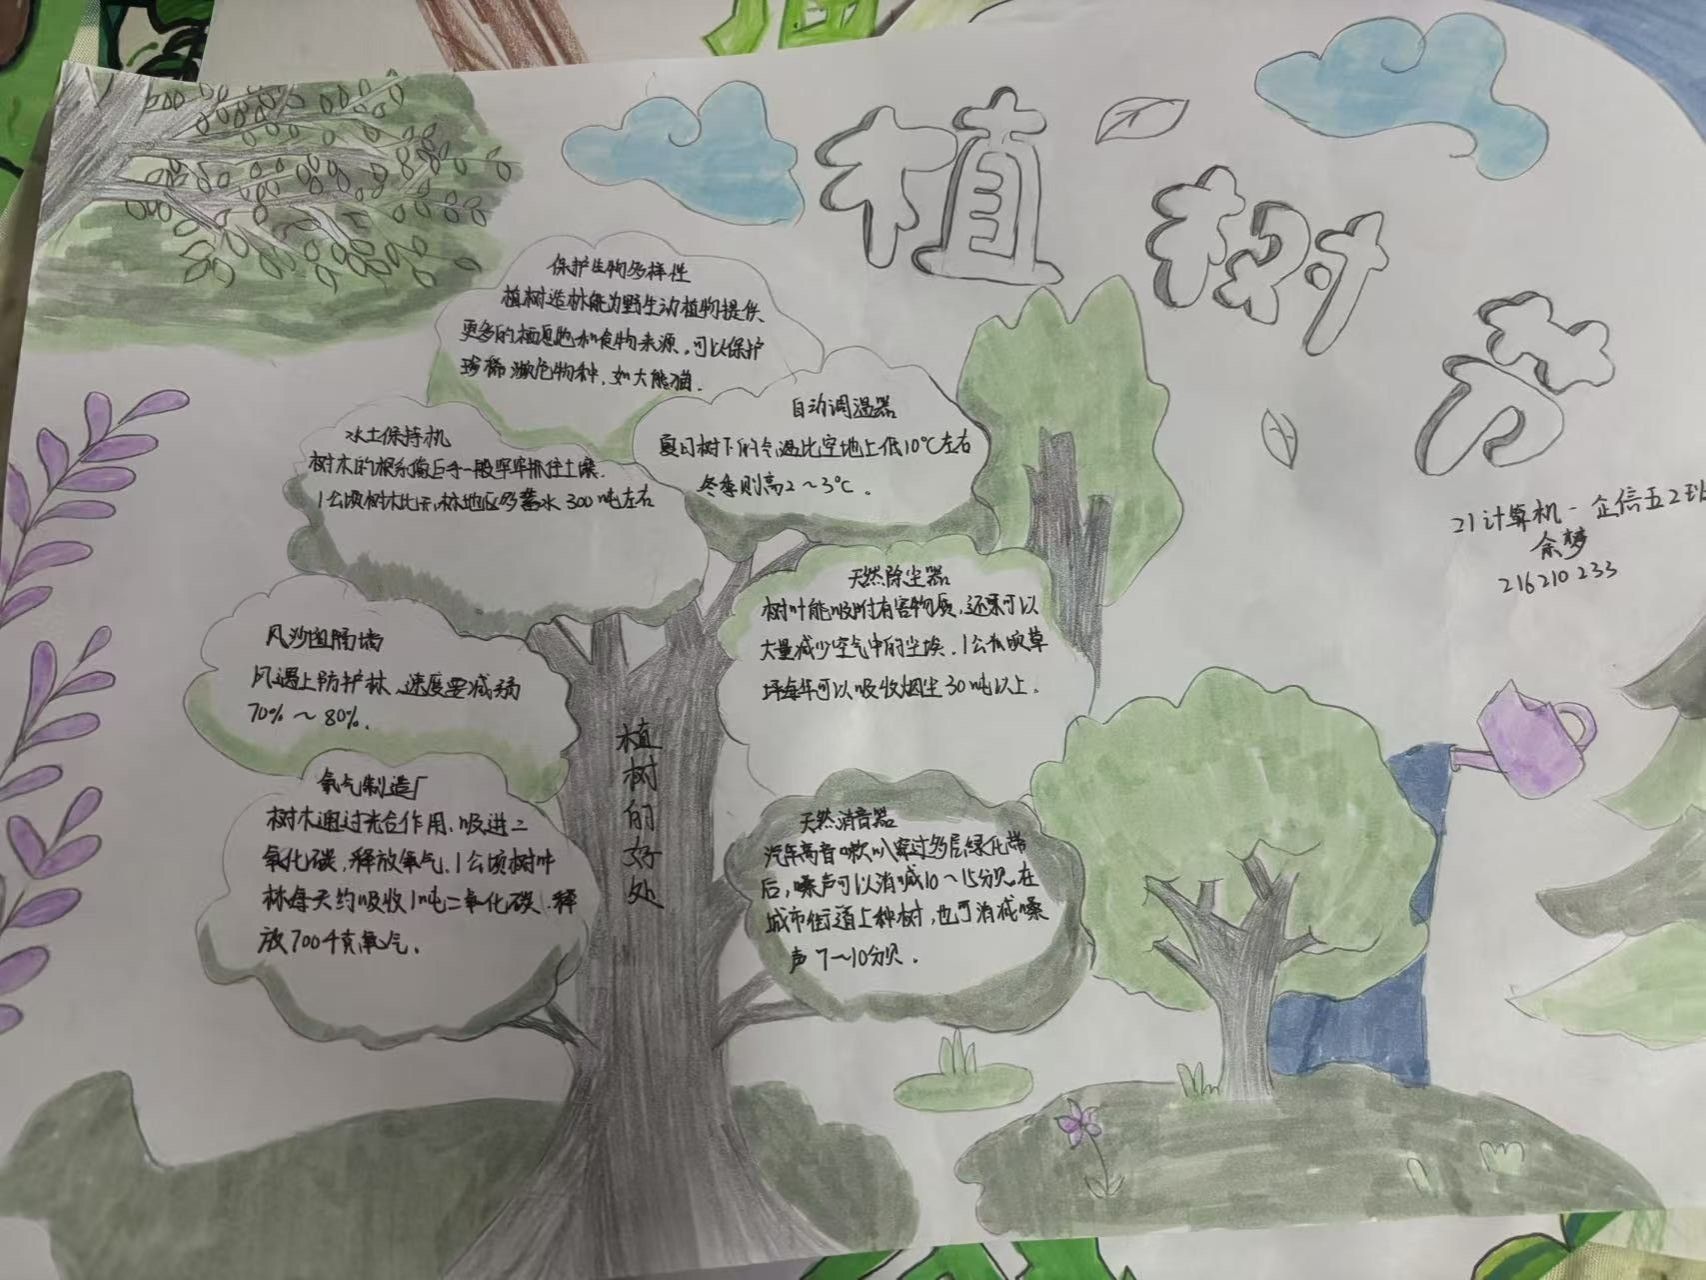 植树节
21计算机-企信五2班
余梦
216210233
保护生物多样性
植树造林能为野生动植物提供
更多的栖息地和食物来源,可以保护
珍稀濒危物种,如大熊猫.
自动调温器
夏日树下的气温比空地上低10℃左右
冬季则高2~3℃.
水土保持机
树木的根系像巨手一般牢牢抓住土壤.
1公顷树木比无林地区多蓄水300吨左右
天然除尘器
树叶能吸附有害物质,还可以
大量减少空气中的尘埃.1公顷草
坪每年可以吸收烟尘30吨以上.
风沙阻隔墙
风遇上防护林,速度要减弱
70%~80%.
植树的好处
氧气制造厂
树木通过光合作用,吸进二
氧化碳,释放氧气,1公顷树叶
林每天约吸收1吨二氧化碳.释
放700千克氧气.
天然消音器
汽车高音喇叭穿过多层绿化带
后,噪声可以消减10~15分贝.在
城市街道上种树,也可消减噪
声7~10分贝.